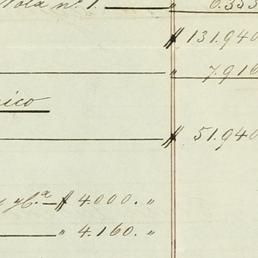 Nota nº 1. " 0.353
$ 131.940
" 7.916
ico
$ 51.940
$ 4.000. "
" 4.160. "